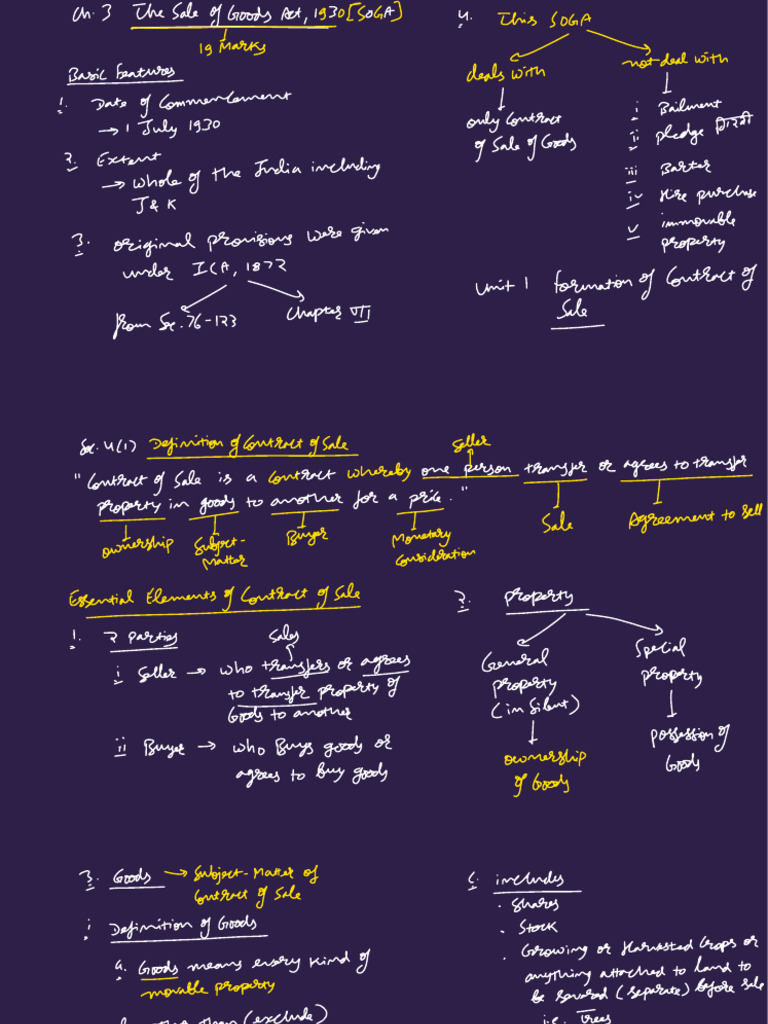 Ch. 3 The Sale of Goods Act, 1930 [SOGA]
19 Marks
Basic Features
1. Date of Commencement
→ 1 July 1930
2. Extent
→ Whole of the India including
J & K
3. original provisions were given
under ICA, 1872
from Sec. 76-123
Chapter VII
4. This SOGA
deals with
only Contract
of Sale of Goods
not deal with
i Bailment
ii pledge गिरवी
iii Barter
iv Hire purchase
v immovable
property
Unit 1 Formation of Contract of
Sale
Sec. 4(1) Definition of Contract of Sale
Seller
"Contract of Sale is a Contract whereby one person transfer or agrees to transfer
property in goods to another for a price."
ownership
Subject-
Matter
Buyer
Monetary
Consideration
Sale
Agreement to sell
Essential Elements of Contract of Sale
1. 2 parties
Sales
i Seller → who transfers or agrees
to transfer property of
Goods to another
ii Buyer → who Buys goods or
agrees to buy goods
2. Property
General
property
(in Silent)
ownership
of Goods
Special
property
possession of
Goods
3. Goods → Subject-Matter of
Contract of Sale
i Definition of Goods
a. Goods means every kind of
movable property
(exclude)
c. includes
. Shares
. Stock
. Growing or Harvested Crops or
anything attached to land to
be (separate) before sale
i.e. Trees